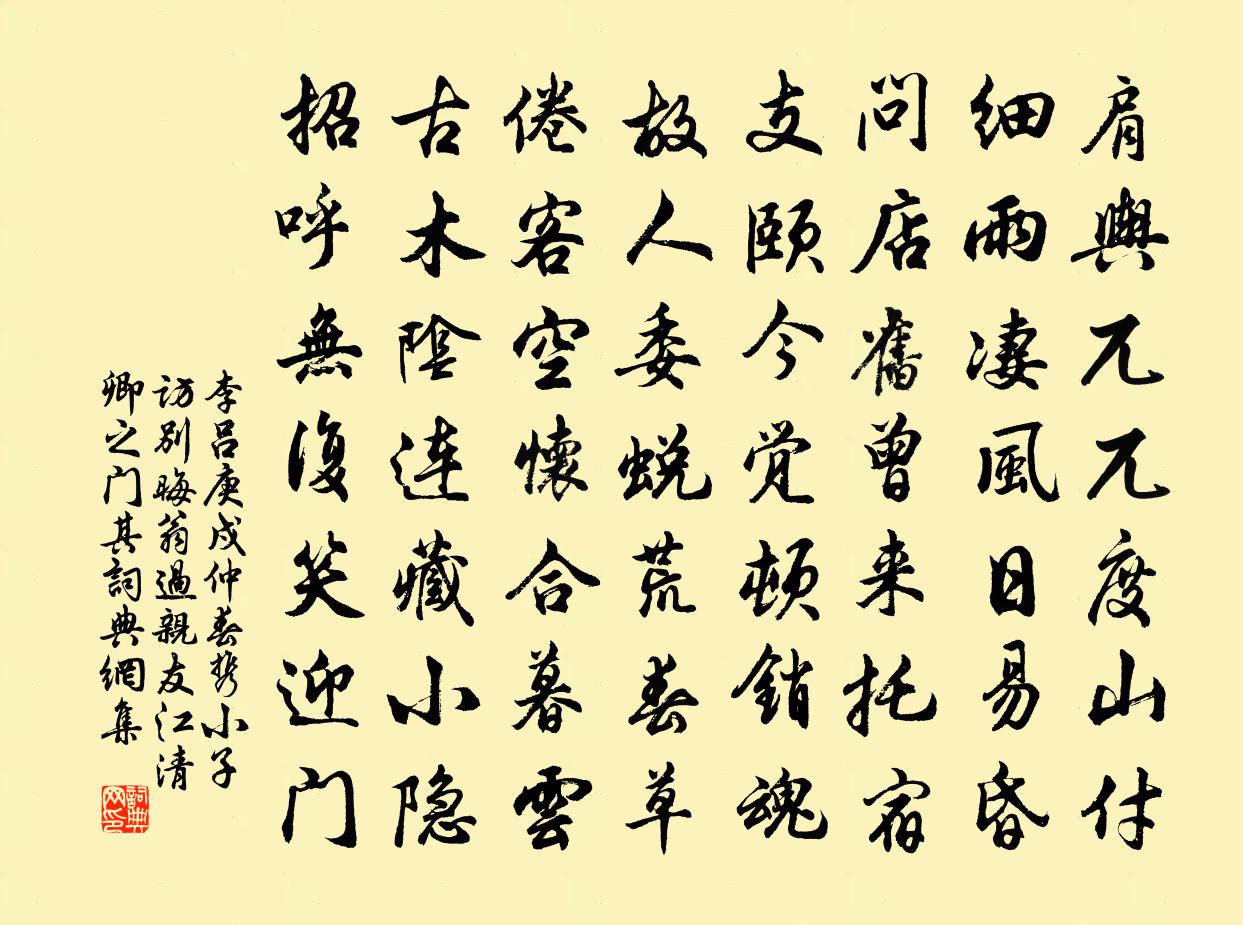 肩輿兀兀度山村
細雨凄風日易昏
問店舊曽来托宿
支頤今覚頓銷魂
故人委蛻荒春草
倦客空懷合暮雲
古木陰連藏小隐
招呼無復笑迎门
李吕庚戌仲春携小子
訪别晦翁過親友江清
卿之门其詞典網集
詞典网印